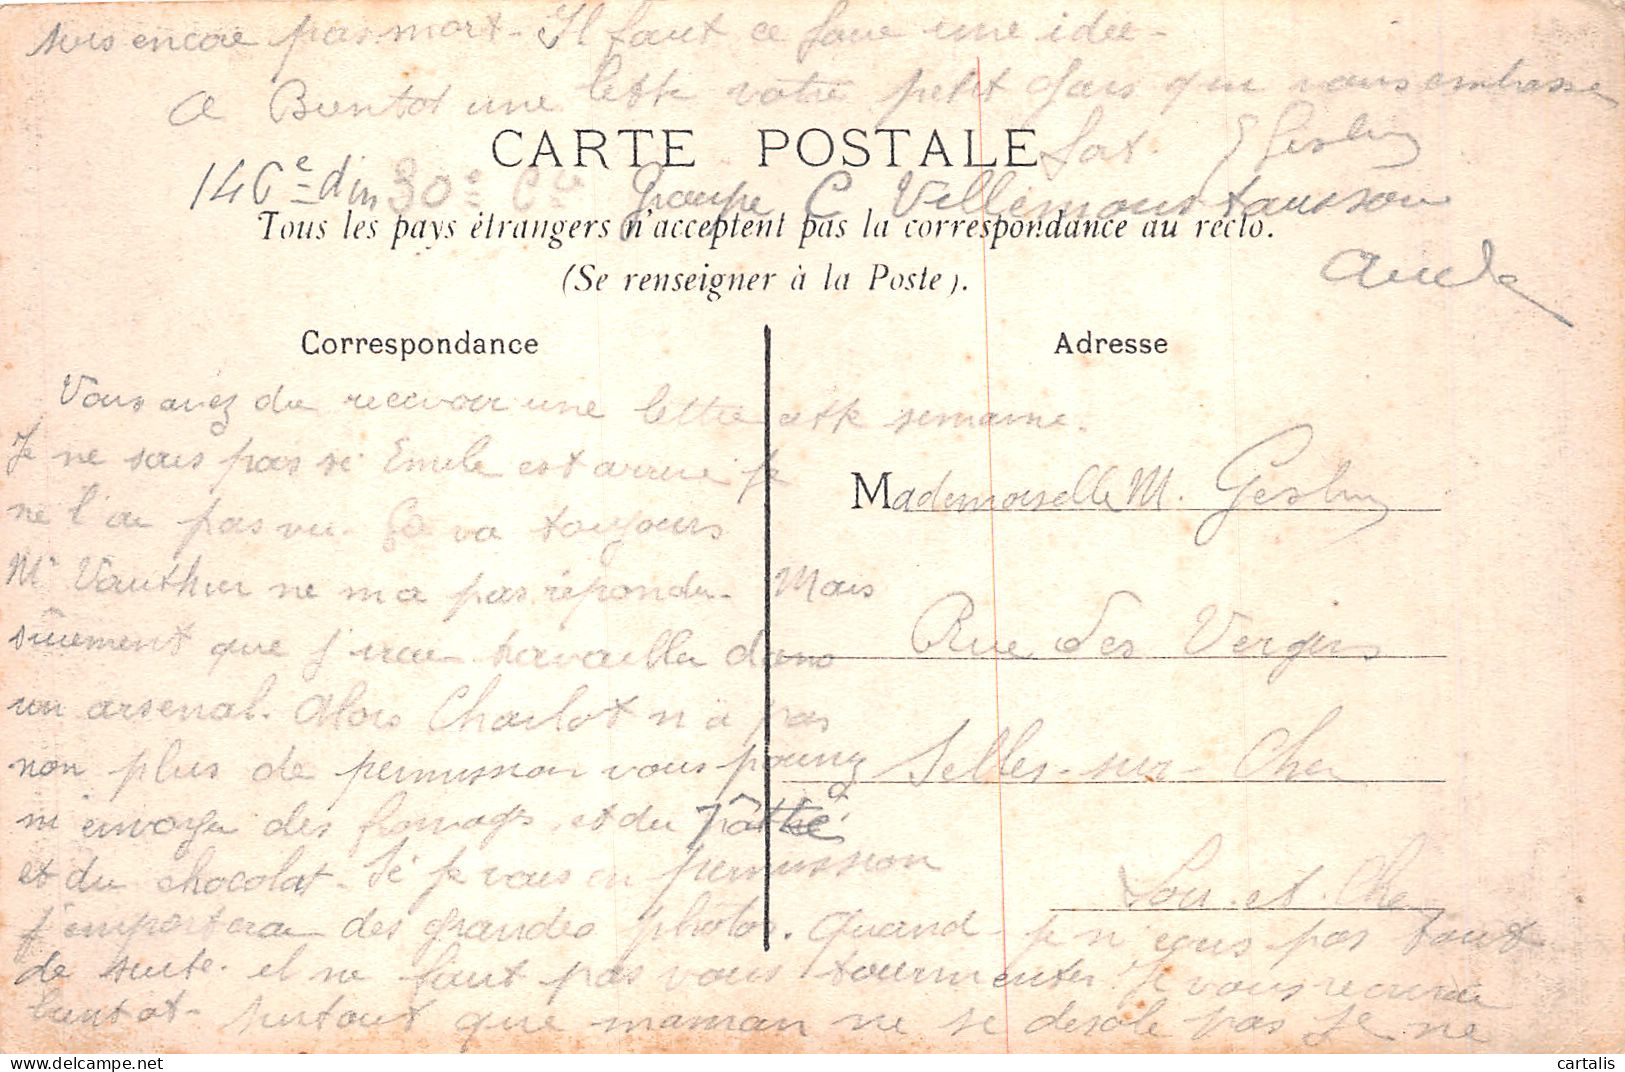 suis encore pas mort - Il faut ce faire une idée -
A Bientot une lette votre petit Gars qui vous embrasse
CARTE POSTALE
146e din 30e Cie Groupe C Villemoustaussou
Tous les pays étrangers n'acceptent pas la correspondance au recto.
(Se renseigner à la Poste).
Aude
Correspondance
Adresse
Vous avez du recevoir une lettre cette semaine.
Je ne sais pas si Emile est arrivé je
ne l'ai pas vu - Ça va toujours
Mr Vauthier ne m'a pas répondu - Mais
sûrement que j'irai travailler dans
un arsenal. Alors Charlot n'a pas
non plus de permission vous pouvez
m'envoyer des fromages et du Pâthé
et du chocolat - Si je vais en permission
j'emporterai des grandes photos. Quand je n'ecris pas tout
de suite - il ne faut pas vous tourmenter Je vous recrirai
bientot - surtout que maman ne se desole pas Je ne
Mademoiselle M. Geslin
Rue des Vergers
Selles-sur-Cher
Loir-et-Che
cartalis